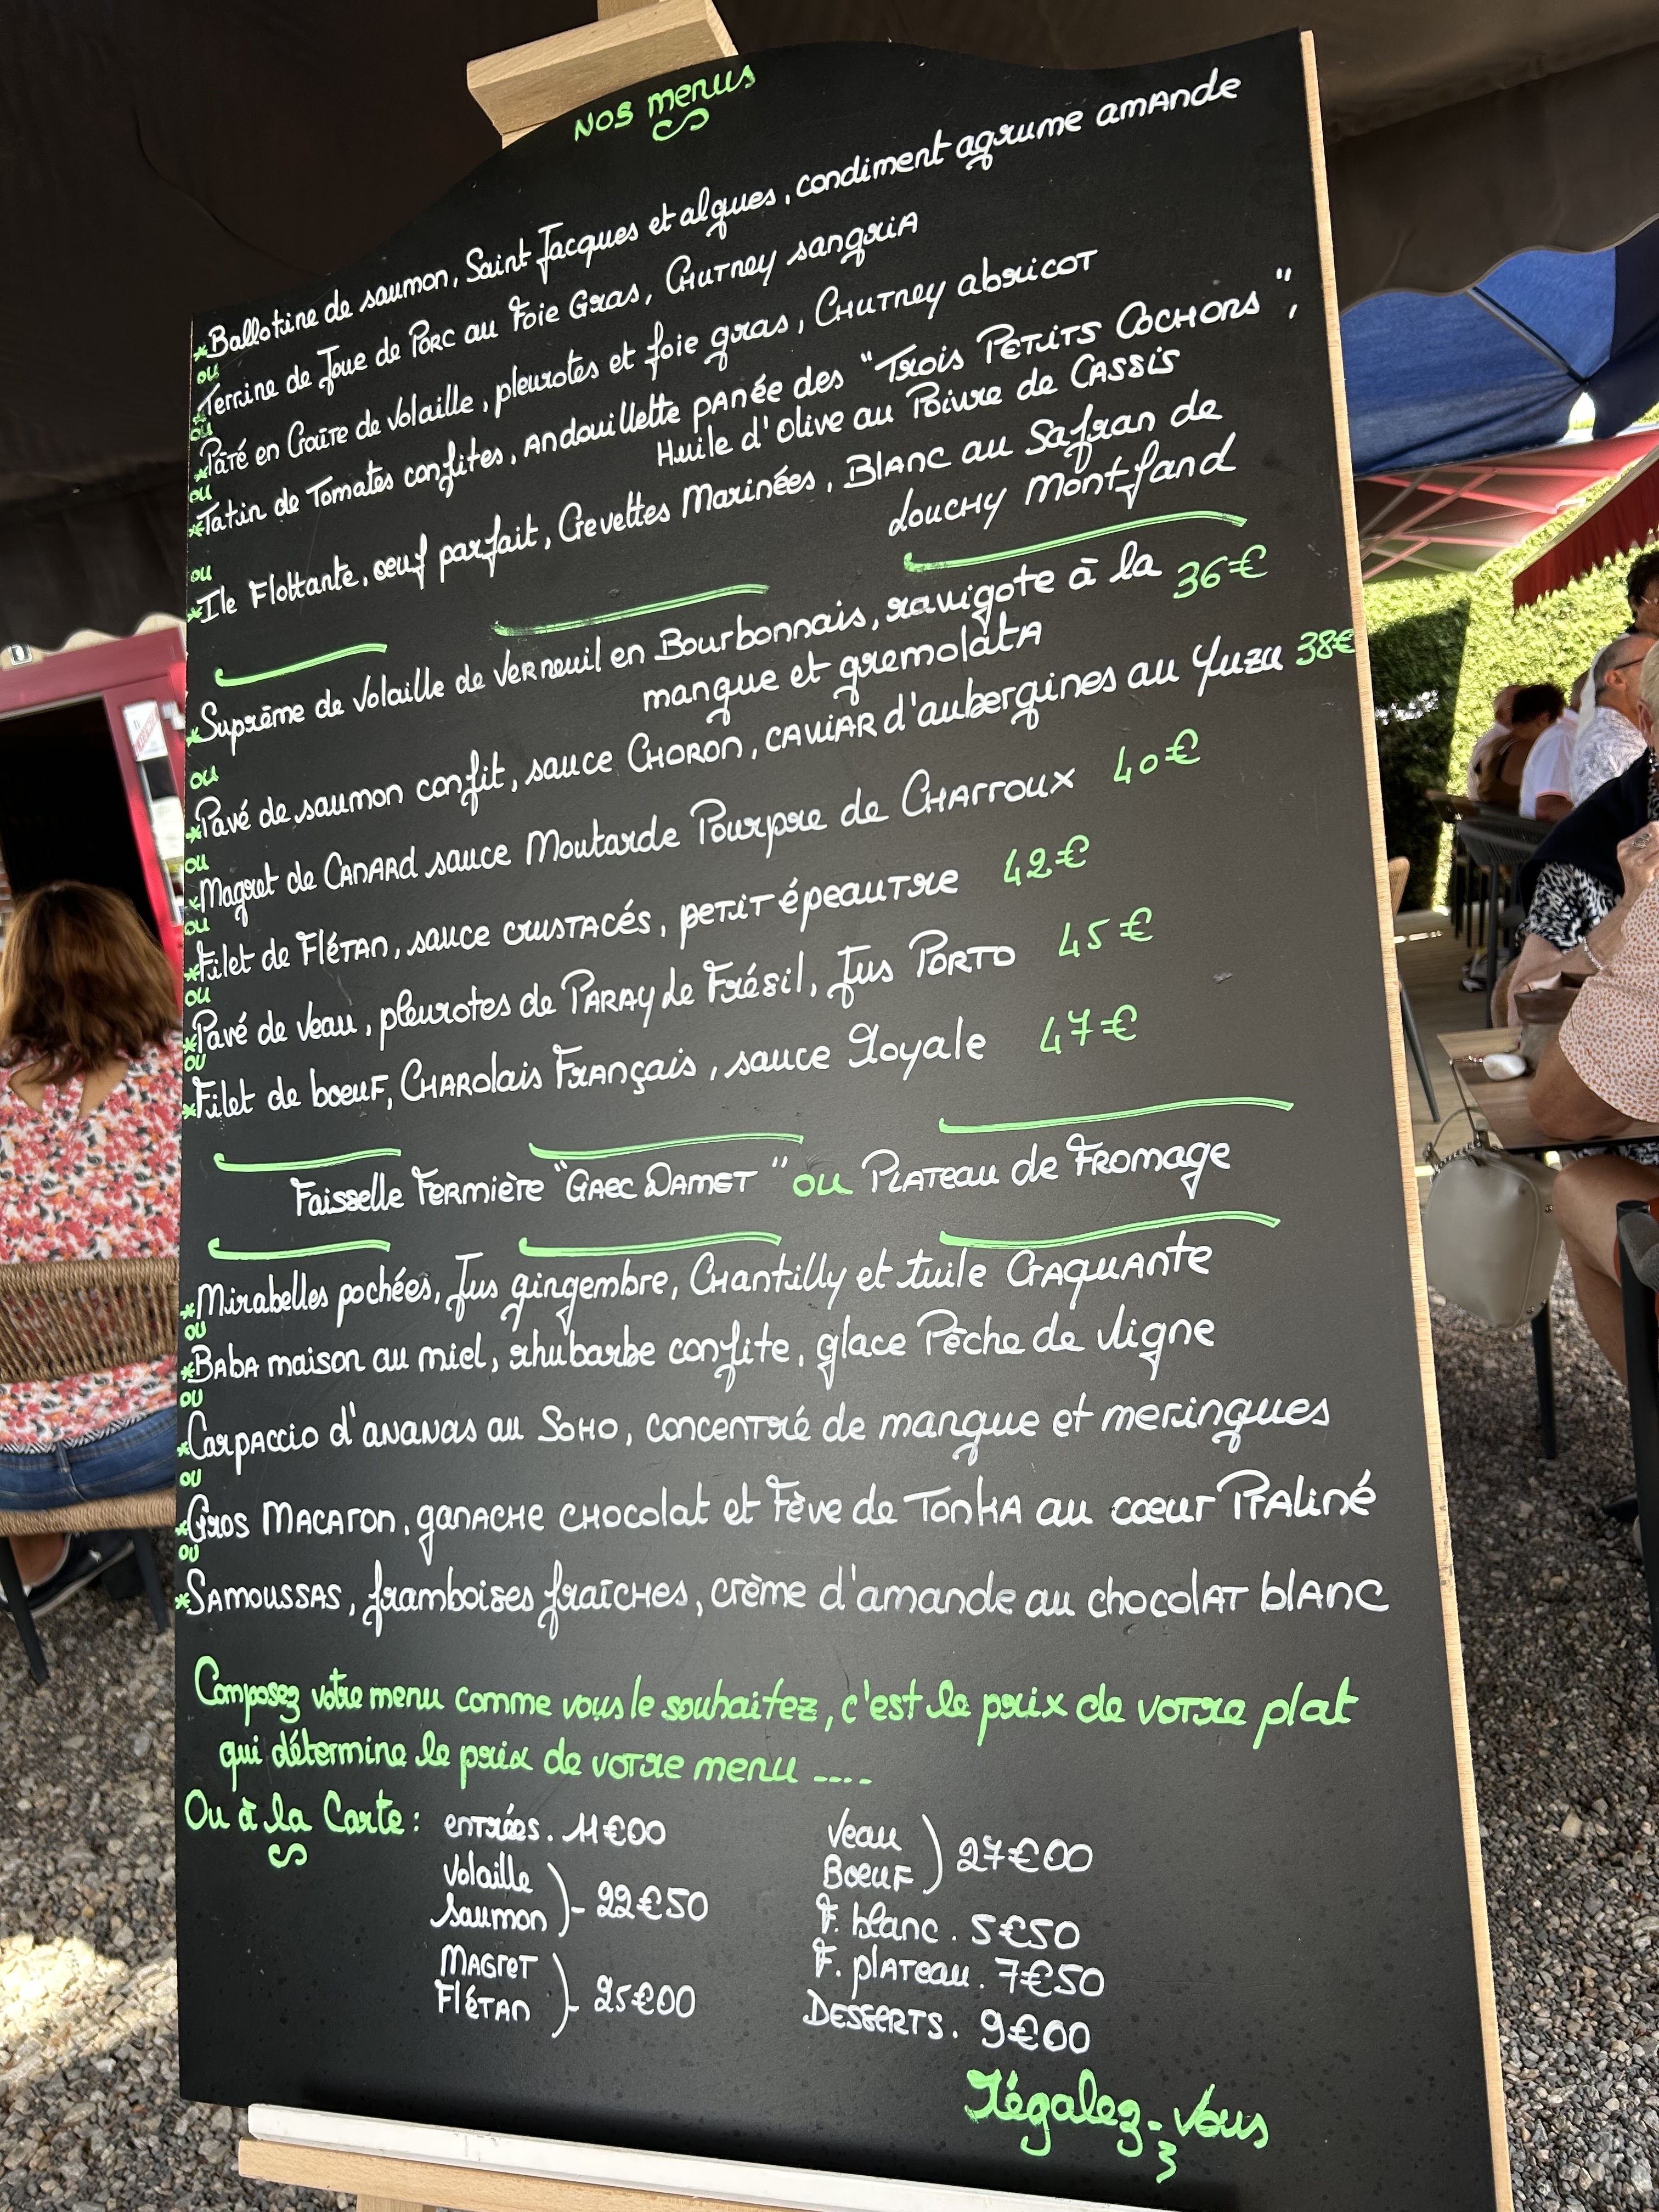 Nos menus
*Ballotine de saumon, Saint Jacques et algues, condiment agrume amande
ou
*Terrine de Joue de Porc au Foie Gras, Chutney sangria
ou
*Pâté en Croûte de volaille, pleurotes et foie gras, Chutney abricot
ou
*Tatin de Tomates confites, Andouillette panée des "Trois Petits Cochons",
Huile d'Olive au Poivre de Cassis
ou
*Ile Flottante, oeuf parfait, Crevettes Marinées, Blanc au Safran de
Louchy Montfand
*Suprême de volaille de Verneuil en Bourbonnais, ravigote à la 36€
mangue et gremolata
ou
*Pavé de saumon confit, sauce Choron, caviar d'aubergines au Yuzu 38€
ou
*Magret de Canard sauce Moutarde Pourpre de Charroux 40€
ou
*Filet de Flétan, sauce crustacés, petit épeautre 42€
ou
*Pavé de veau, pleurotes de Paray Le Frésil, Jus Porto 45€
ou
*Filet de boeuf, Charolais Français, sauce Royale 47€
Faisselle Fermière "Gaec Damet" ou Plateau de Fromage
*Mirabelles pochées, Jus gingembre, Chantilly et tuile Craquante
ou
*Baba maison au miel, rhubarbe confite, glace Pêche de vigne
ou
*Carpaccio d'ananas au Soho, concentré de mangue et meringues
ou
*Gros Macaron, ganache chocolat et Fève de Tonka au coeur Praliné
ou
*Samoussas, framboises fraîches, crème d'amande au chocolat blanc
Composez votre menu comme vous le souhaitez, c'est le prix de votre plat
qui détermine le prix de votre menu ....
Ou à la Carte : entrées. 11€00
Volaille
Saumon )- 22€50
Magret
Flétan )- 25€00
Veau
Boeuf ) 27€00
F. blanc. 5€50
F. plateau. 7€50
Desserts. 9€00
Régalez-vous